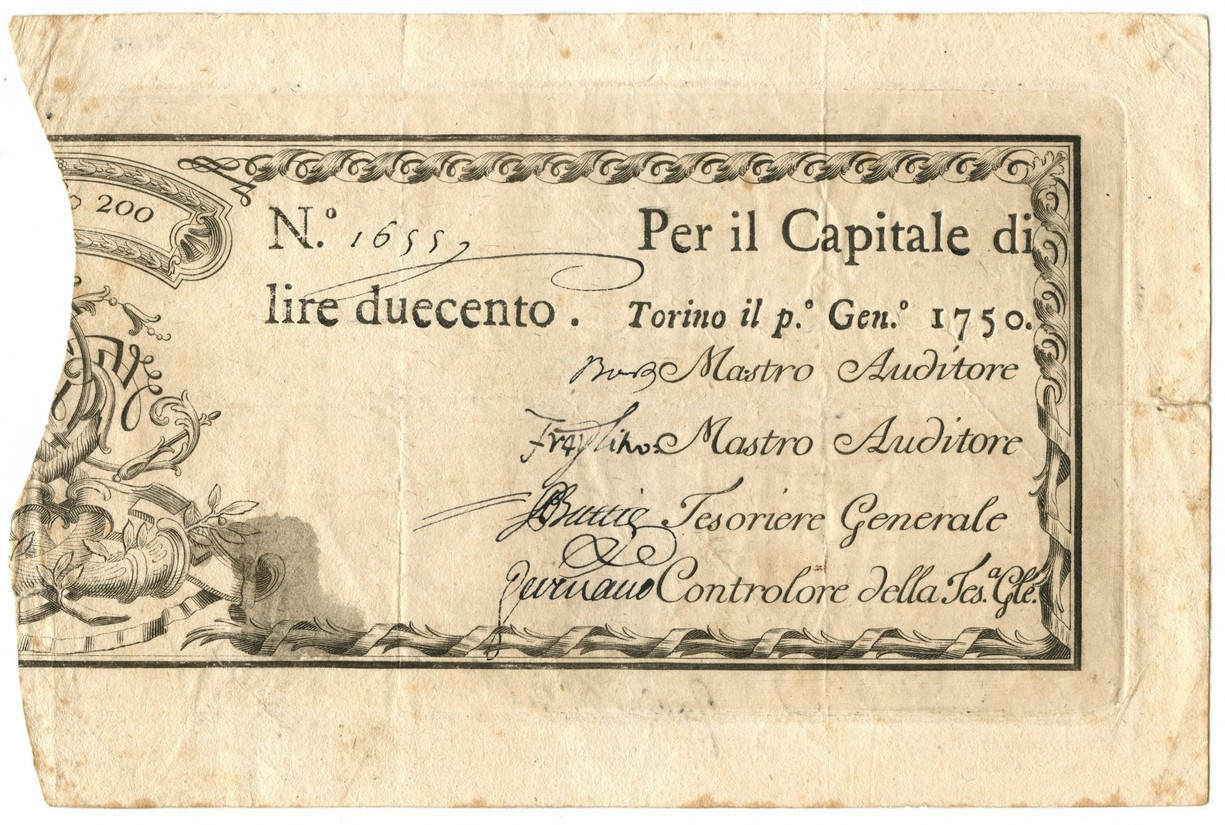 200
N.º 16557 Per il Capitale di
lire duecento. Torino il p.º Gen.º 1750.
Mastro Auditore
Mastro Auditore
Tesoriere Generale
Controlore della Tes.ª Gle.